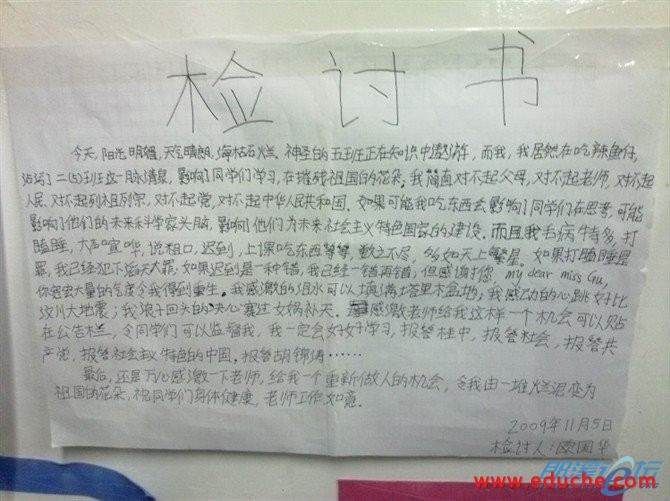 检讨书
今天,阳光明媚,天气晴朗,海枯石烂。神圣的五班正在知识中遨游,而我,我居然在吃辣鱼仔,
沾污了二(5)班这一脉清泉,影响了同学们学习,在摧残祖国的花朵,我简直对不起父母,对不起老师,对不起
人民,对不起列祖列宗,对不起党,对不起中华人民共和国,如果可能我吃东西会影响了同学们在思考,可能
影响了他们的未来科学家头脑,影响了他们为未来社会主义特色国家的建设。而且我毛病特多,打
瞌睡,大声喧哗,说粗口,迟到,上课吃东西等等,数之不尽,多如天上繁星。如果打瞌睡是
罪,我已经犯下滔天大罪;如果迟到是一种错,我已经一错再错;但感谢您,my dear miss Gu,
你强大量的气度令我得到重生。我感激的泪水可以填满塔里木盆地;我感动的心跳好比
汶川大地震;我浪子回头的决心赛过女娲补天。感激老师给我这样一个机会可以贴
在公告栏,令同学们可以监督我,我一定会好好学习,报答桂中,报答社会,报答共
产党,报答社会主义特色的中国,报答胡锦涛……
最后,还是万心感激一下老师,给我一个重新做人的机会,令我由一堆烂泥变为
祖国的花朵,祝同学们身体健康,老师工作如意。
2009年11月5日
检讨人:国华
www.eduche.com